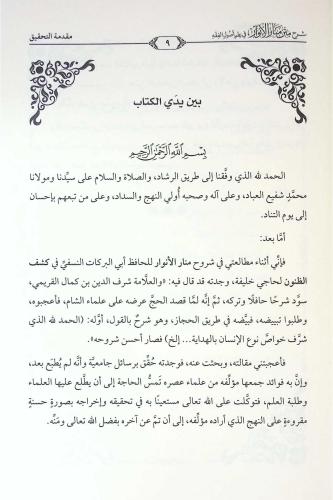 شرح متن منار الأنوار في علم أصول الفقه
٩
مقدمة التحقيق
بين يدَي الكتاب
بِسْمِ اللَّهِ الرَّحْمَنِ الرَّحِيمِ
الحمد لله الذي وفَّقنا إلى طريق الرشاد، والصلاة والسلام على سيِّدنا ومولانا
محمَّدٍ شفيع العباد، وعلى آله وصحبه أُولي النهج والسداد، وعلى من تبعهم بإحسان
إلى يوم التناد.
أمَّا بعد:
فإنِّي أثناء مطالعتي في شروح منار الأنوار للحافظ أبي البركات النسفيِّ في كشف
الظنون لحاجي خليفة، وجدته قد قال فيه: «والعلَّامة شرف الدين بن كمال القريمي،
سوَّد شرحًا حافلًا وتركه، ثمَّ إنَّه لمَّا قصد الحجَّ عرضه على علماء الشام، فأعجبوه،
وطلبوا تبييضه، فبيَّضه في طريق الحجاز، وهو شرحٌ بالقول، أوَّله: (الحمد لله الذي
شرَّف خواصَّ نوع الإنسان بالهداية... إلخ) فصار أحسن شروحه».
فأعجبتني مقالته، وبحثت عنه، فوجدته حُقِّق برسائل جامعيَّة وأنَّه لم يُطبَع بعد،
وإنَّ به فوائد جمعها مؤلِّفه من علماء عصره تمَسُّ الحاجة إلى أن يطَّلع عليها العلماء
وطلبة العلم، فتوكَّلت على الله تعالى مستعينًا به في تحقيقه وإخراجه بصورةٍ حسنةٍ
مقروءةٍ على النهج الذي أراده مؤلِّفه، إلى أن تمَّ عن آخره بفضل الله تعالى ومَنِّه.